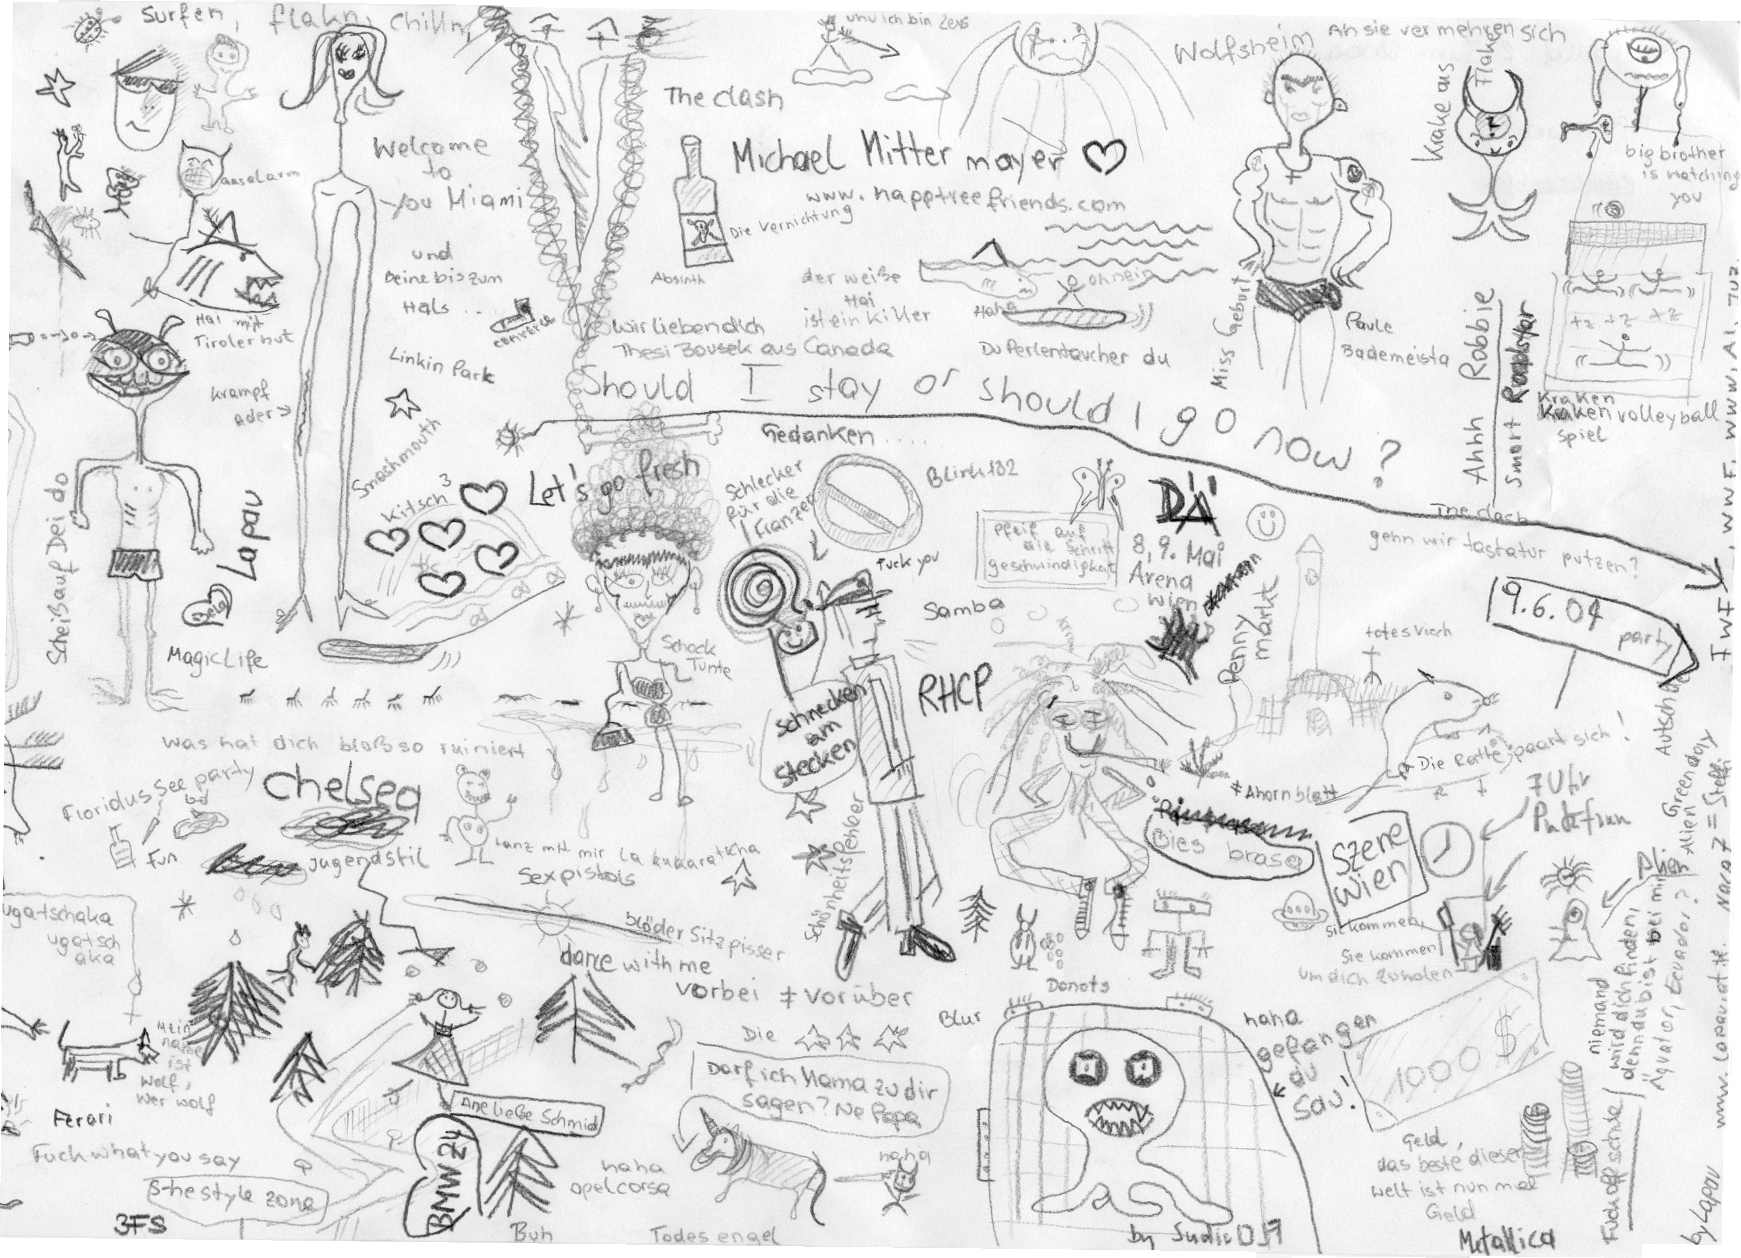 Surfen, flakn, chilln,
uhu ich bin Zeus
Wolfsheim
Ah sie vermehren sich
The clash
Krake aus
Flak
Welcome
to
you Miami
Michael Mittermayer
www.happtreefriends.com
big brother
is watching
you
Die Vernichtung
Absinth
und
Beine bis zum
Hals ...
converse
der weiße
Hai
ist ein Killer
oh nein
Haha
Hai mit
Tirolerhut
wir lieben dich
Thesi Bousek aus Canada
Du Perlentaucher du
Miss Geburt
Paule
Bademeista
Ahhh Robbie
Smart
+z +z +z
Kraken
Kraken volleyball
spiel
Linkin Park
Krampf
ader
Should I stay or should I go now?
Smashmouth
Kitsch³
Let's go fresh
Gedanken ....
Schlecker
für die
Blink182
Fuck you
Pfeif auf
die Schrift
geschwindigkeit
DÄ
8,9. Mai
Arena
Wien
The clash
gehn wir tastatur putzen?
9.6.04
party
Scheißauf Dei do
Lapau
Magic Life
Schock
Tunte
Samba
Penny
markt
totes Viech
RHCP
Schnecken
am
Stecken
was hat dich bloß so ruiniert
Floridus See party
Fun
Chelsea
Jugendstil
tanz mit mir La kukaratcha
Sexpistols
Schönheitsfehler
Die Ratte paart sich!
≠ Ahornblatt
Bies brasa
Szene
wien
7 Uhr
Alien
Alien Greenday
ugatschaka
ugatsch
aka
blöder Sitzpisser
dance with me
vorbei ≠ vorüber
sie kommen,
sie kommen,
um dich zu holen
Donots
Blur
Die
Darf ich Mama zu dir
sagen? Ne Papa
haha
gefangen
du
Sau!
1000 $
niemand
wird dich finden,
denn du bist bei mir
Äquator, Ecuador?
Mein
name
ist
Wolf,
Wer wolf
Ferari
Fuck what you say
S-the style zone
3FS
Anneliebe Schmid
BMW 24
Buh
haha
opelcorsa
Todesengel
haha
Geld,
das beste dieser
Welt ist nun mal
Geld
Metallica
Fuck off schule
by Lapau